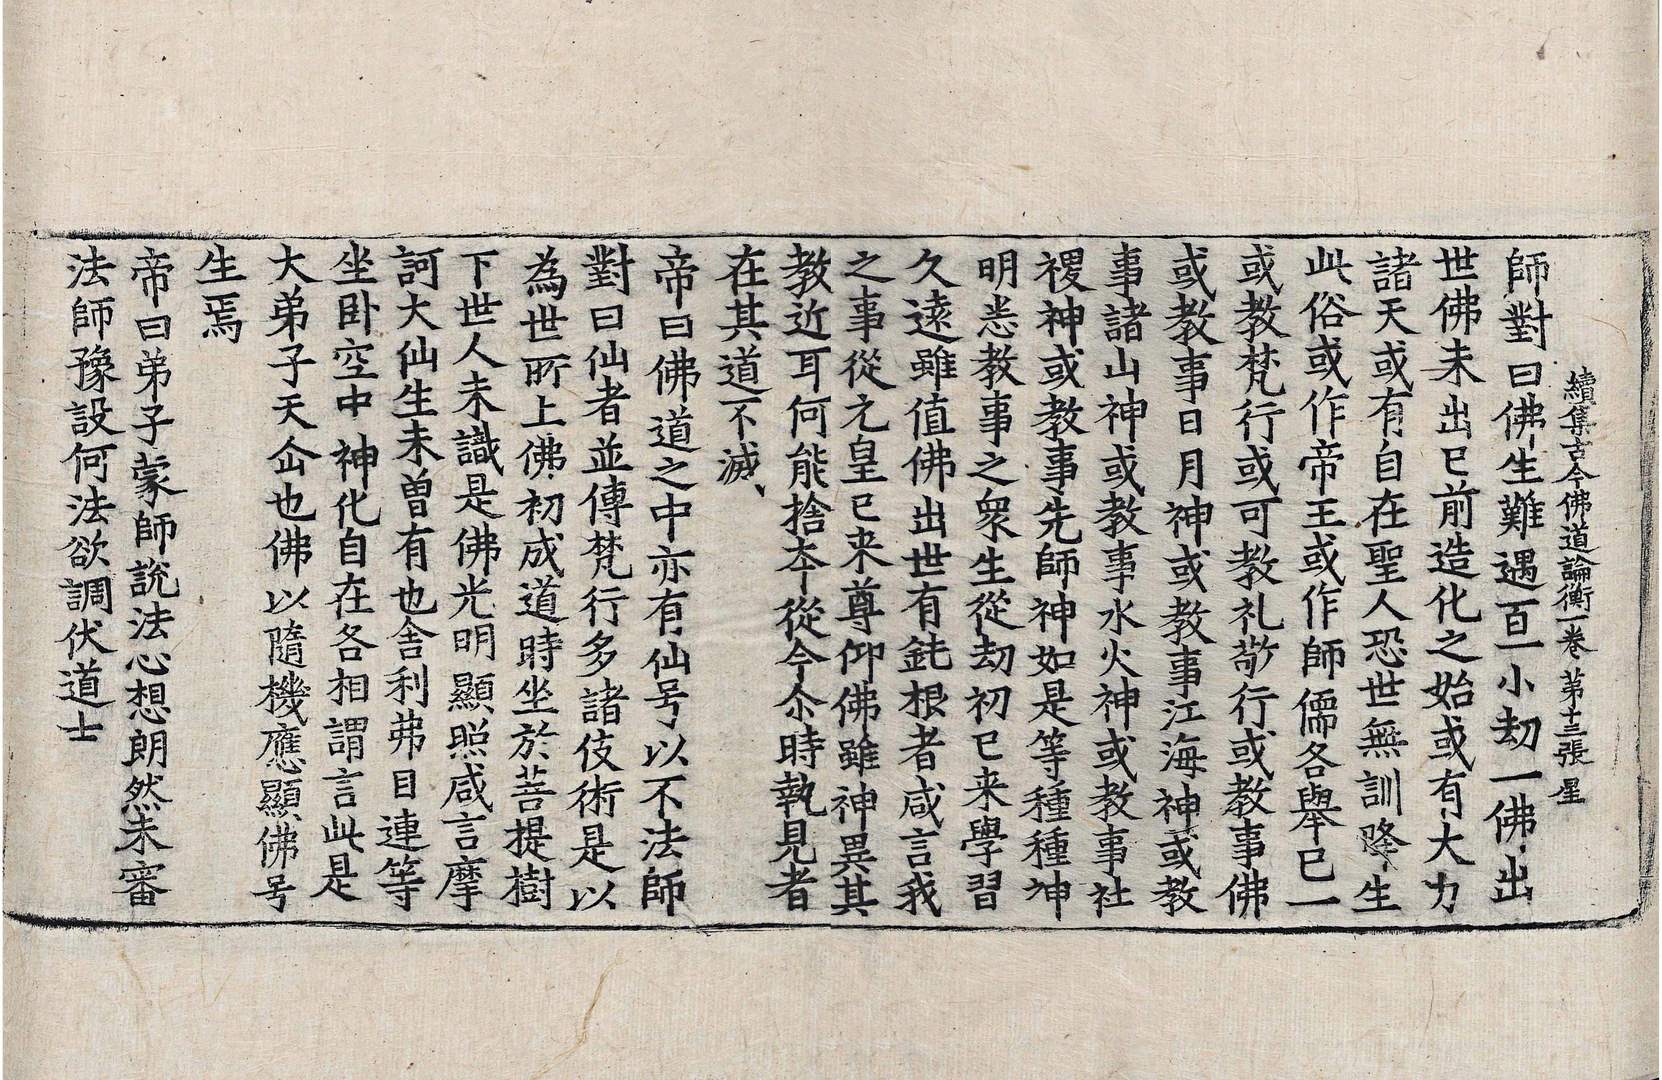 續集古今佛道論衡一卷 第十三張 星
師對曰佛生難遇百一小劫一佛出
世佛未出已前造化之始或有大力
諸天或有自在聖人恐世無訓降生
此俗或作帝王或作師儒各舉已一
或教梵行或可教礼敬行或教事佛
或教事日月神或教事江海神或教
事諸山神或教事水火神或教事社
稷神或教事先師神如是等種種神
明悉教事之衆生從劫初已来學習
久遠雖值佛出世有鈍根者咸言我
之事從元皇已来尊仰佛雖神異其
教近耳何能捨夲從今尒時執見者
在其道不滅
帝曰佛道之中亦有仙号以不法師
對曰仙者並傳梵行多諸伎術是以
為世所上佛初成道時坐於菩提樹
下世人未識是佛光明顯照咸言摩
訶大仙生未曾有也舎利弗目連等
坐卧空中神化自在各相謂言此是
大弟子天仚也佛以隨機應顯佛号
生焉
帝曰弟子蒙師說法心想朗然未審
法師豫設何法欲調伏道士